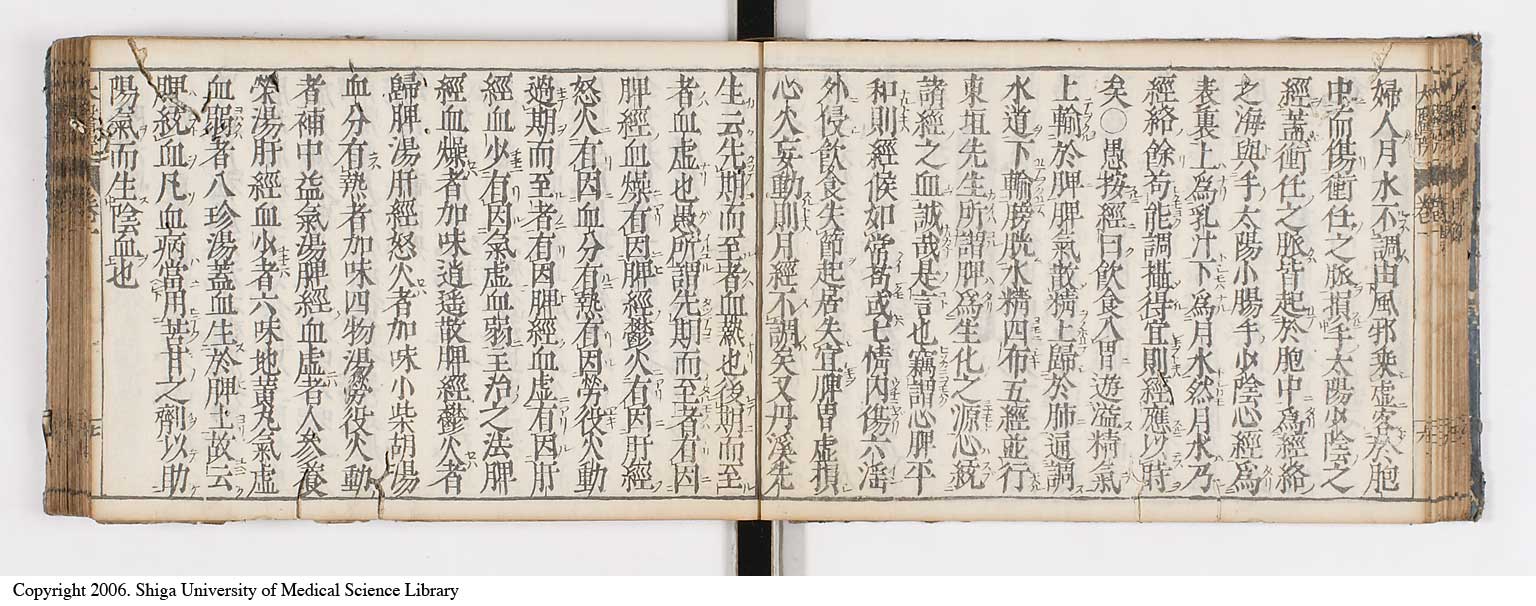 婦人月水不調由風邪乘虛客於胞
中而傷衝任之脈損手太陽少陰之
經蓋衝任之脈皆起於胞中爲經絡
之海與手太陽小腸手少陰心經爲
表裏上爲乳汁下爲月水然月水乃
經絡餘苟能調攝得宜則經應以時
矣○愚按經曰飲食入胃遊溢精氣
上輸於脾脾氣散精上歸於肺通調
水道下輸膀胱水精四布五經並行
東垣先生所謂脾爲生化之源心統
諸經之血誠哉是言也竊謂心脾平
和則經候如常苟或七情內傷六淫
外侵飲食失節起居失宜脾胃虛損
心火妄動則月經不調矣又丹溪先
生云先期而至者血熱也後期而至
者血虛也愚所謂先期而至者有因
脾經血燥有因脾經鬱火有因肝經
怒火有因血分有熱有因勞役火動
過期而至者有因脾經血虛有因肝
經血少有因氣虛血弱主治之法脾
經血燥者加味逍遙散脾經鬱火者
歸脾湯肝經怒火者加味小柴胡湯
血分有熱者加味四物湯勞役火動
者補中益氣湯脾經血虛者人參養
榮湯肝經血少者六味地黃丸氣虛
血弱者八珍湯蓋血生於脾土故云
脾統血凡血病當用苦甘之劑以助
陽氣而生陰血也
Copyright 2006. Shiga University of Medical Science Library